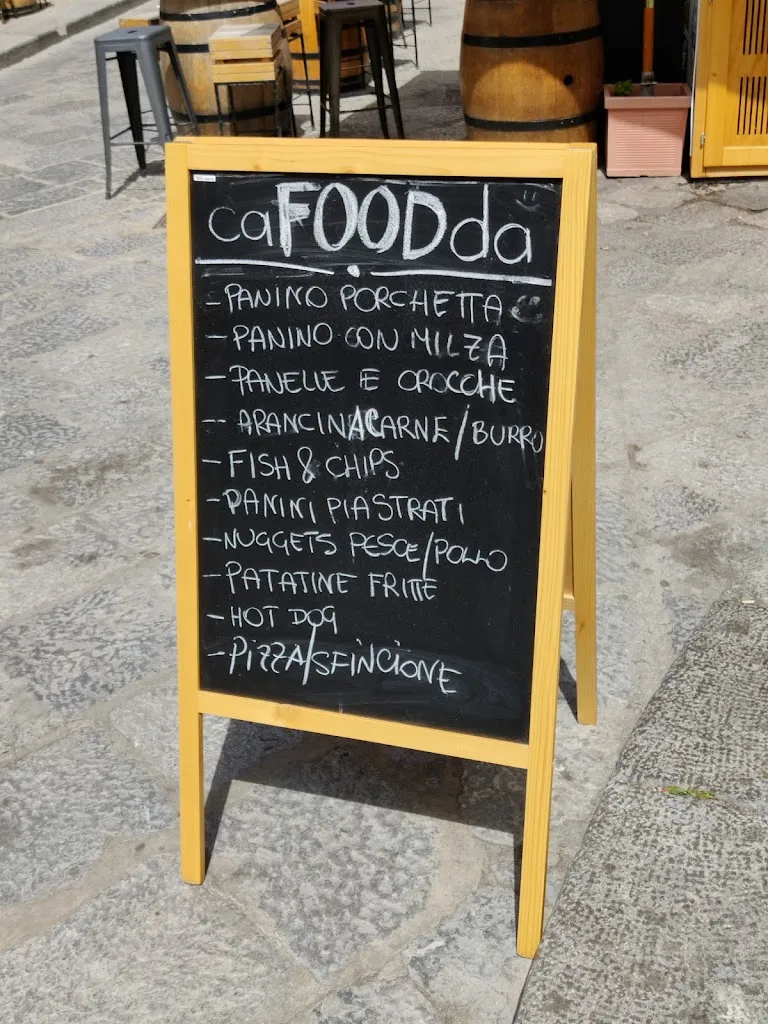 caFOODda
- PANINO PORCHETTA
- PANINO CON MILZA
- PANELLE E CROCCHE
- ARANCINACARNE/BURRO
- FISH & CHIPS
- PANINI PIASTRATI
- NUGGETS PESCE/POLLO
- PATATINE FRITTE
- HOT DOG
- PIZZA/SFINCIONE